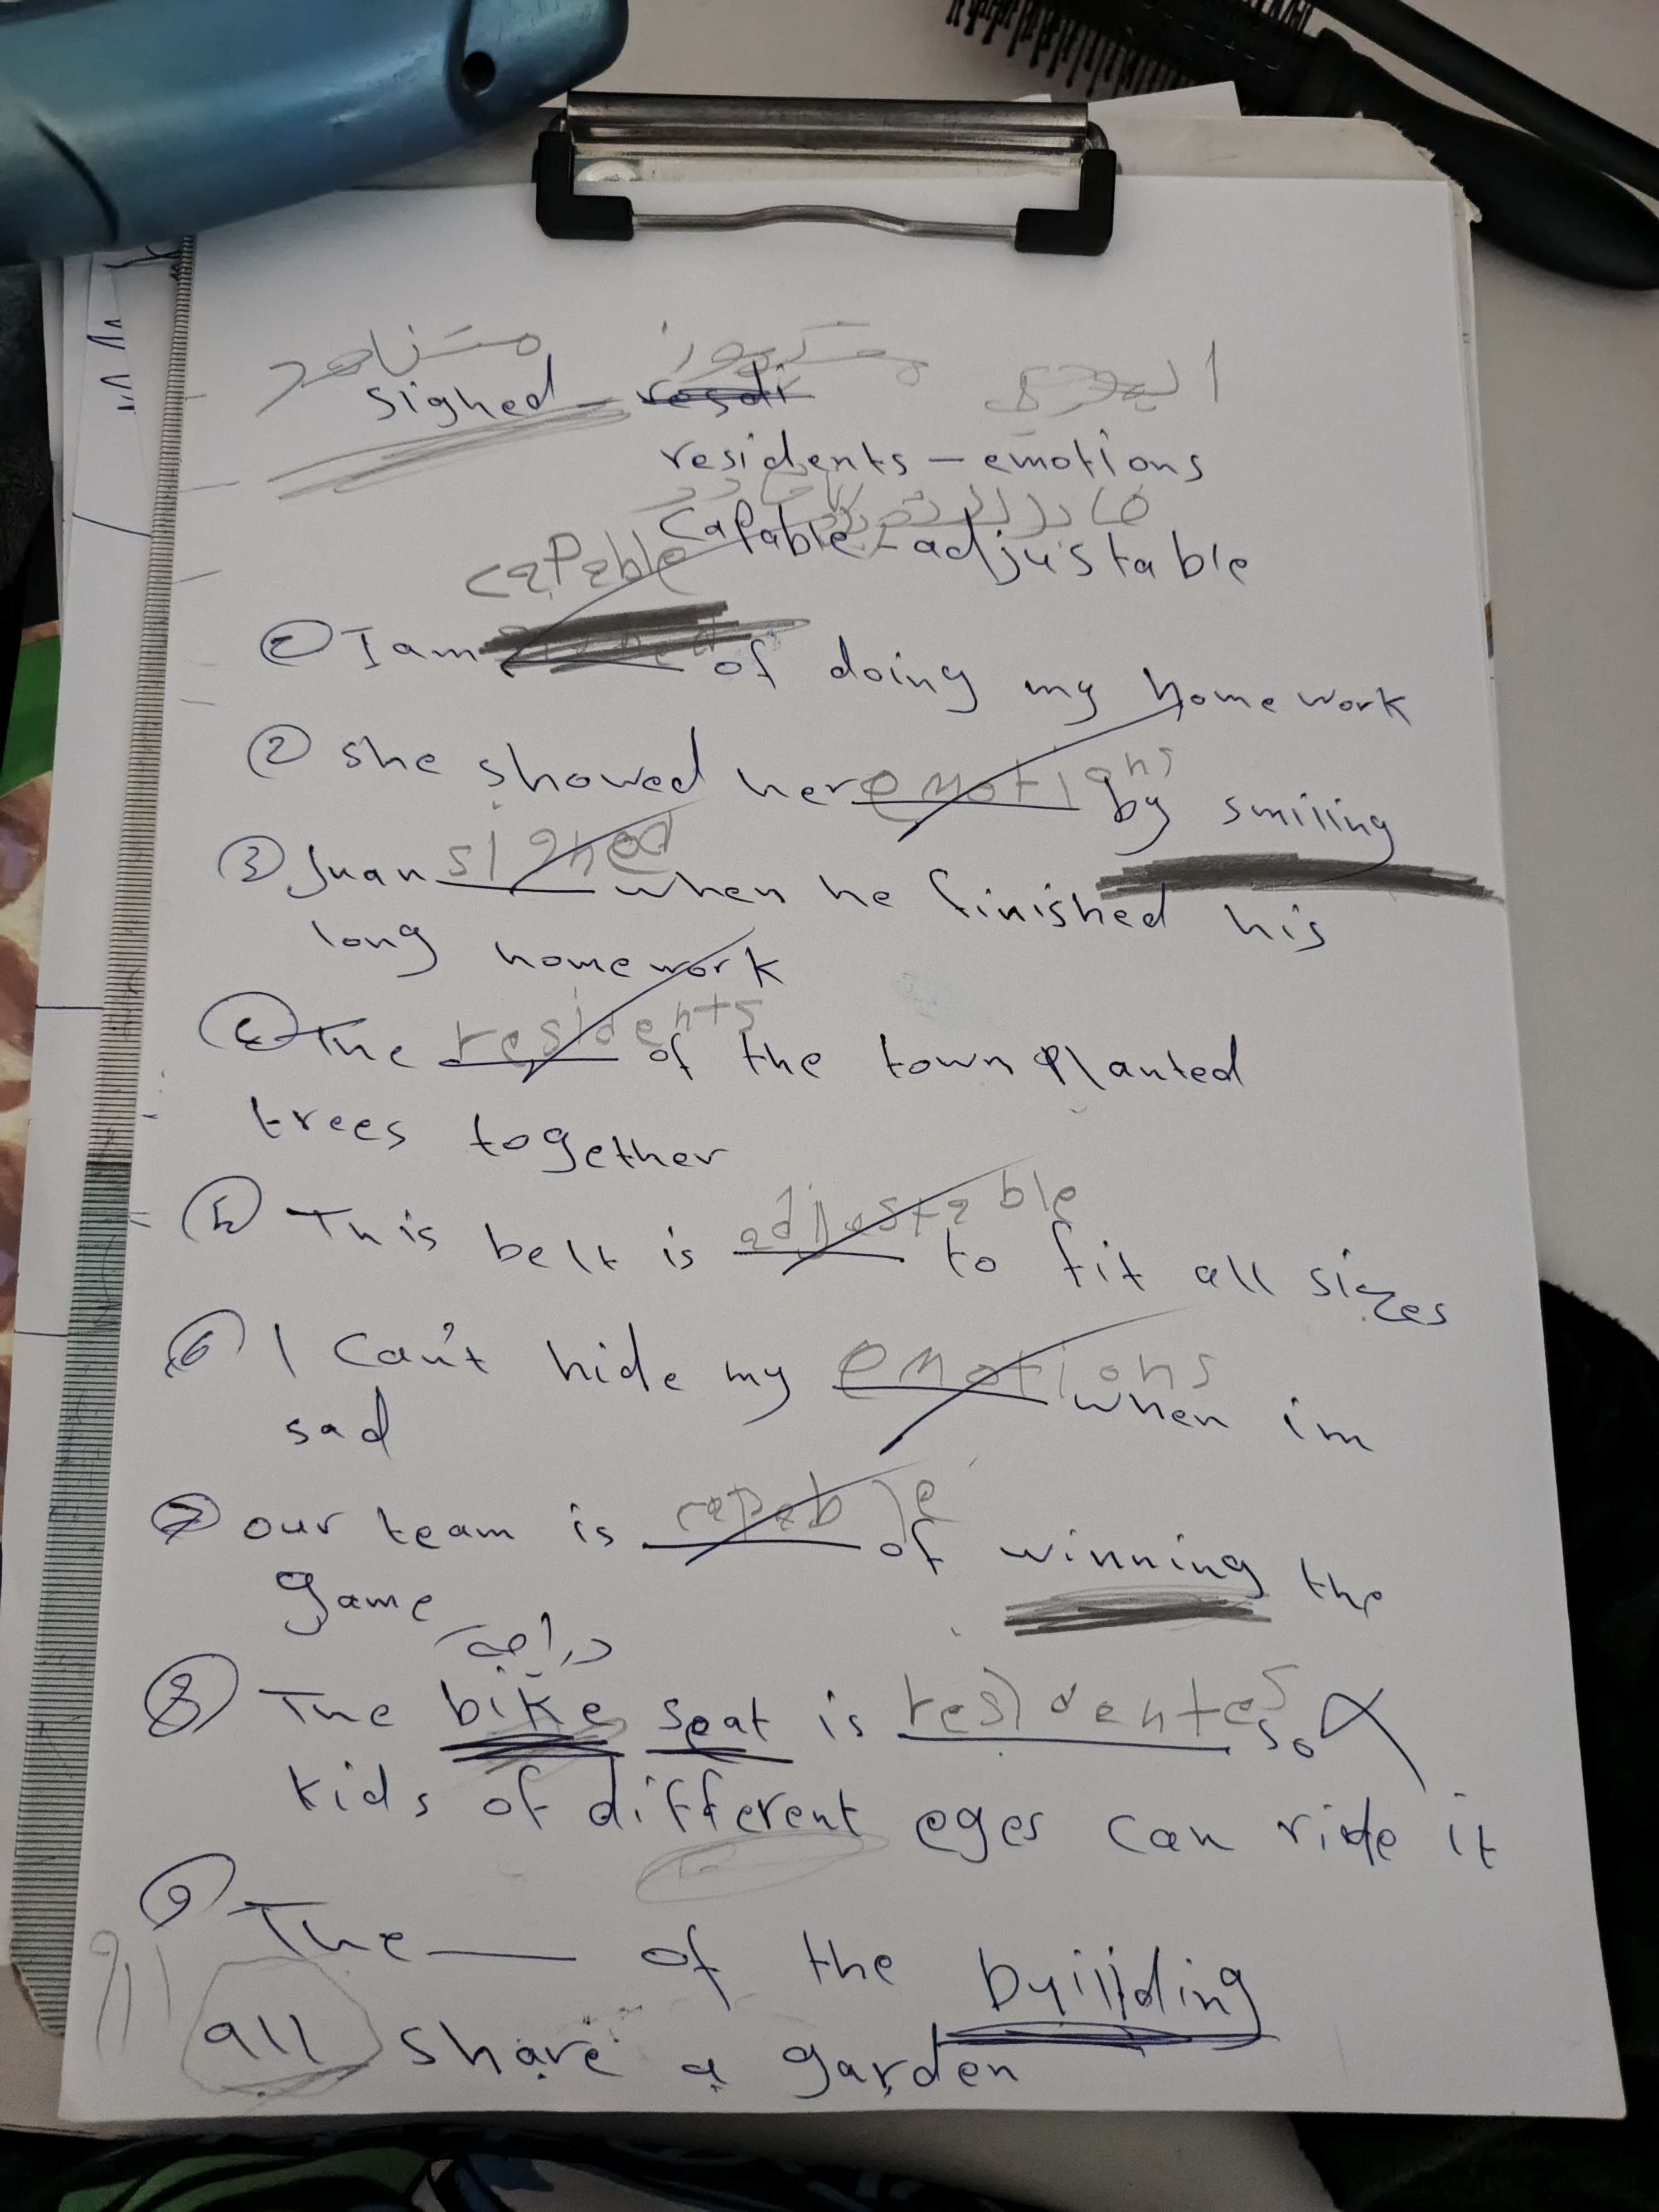 sighed – resdi
residents – emotions
capable – adjustable
capable
① I am of doing my homework
② she showed her emotions by smiling
③ Juan sighed when he finished his
long homework
④ The residents of the town planted
trees together
⑤ This belt is adjustable to fit all sizes
⑥ I can't hide my emotions when im
sad
⑦ our team is capable of winning the
game
دراجة
⑧ The bike seat is residentes so
kids of different eges can ride it
⑨ The ___ of the buillding
all share a garden